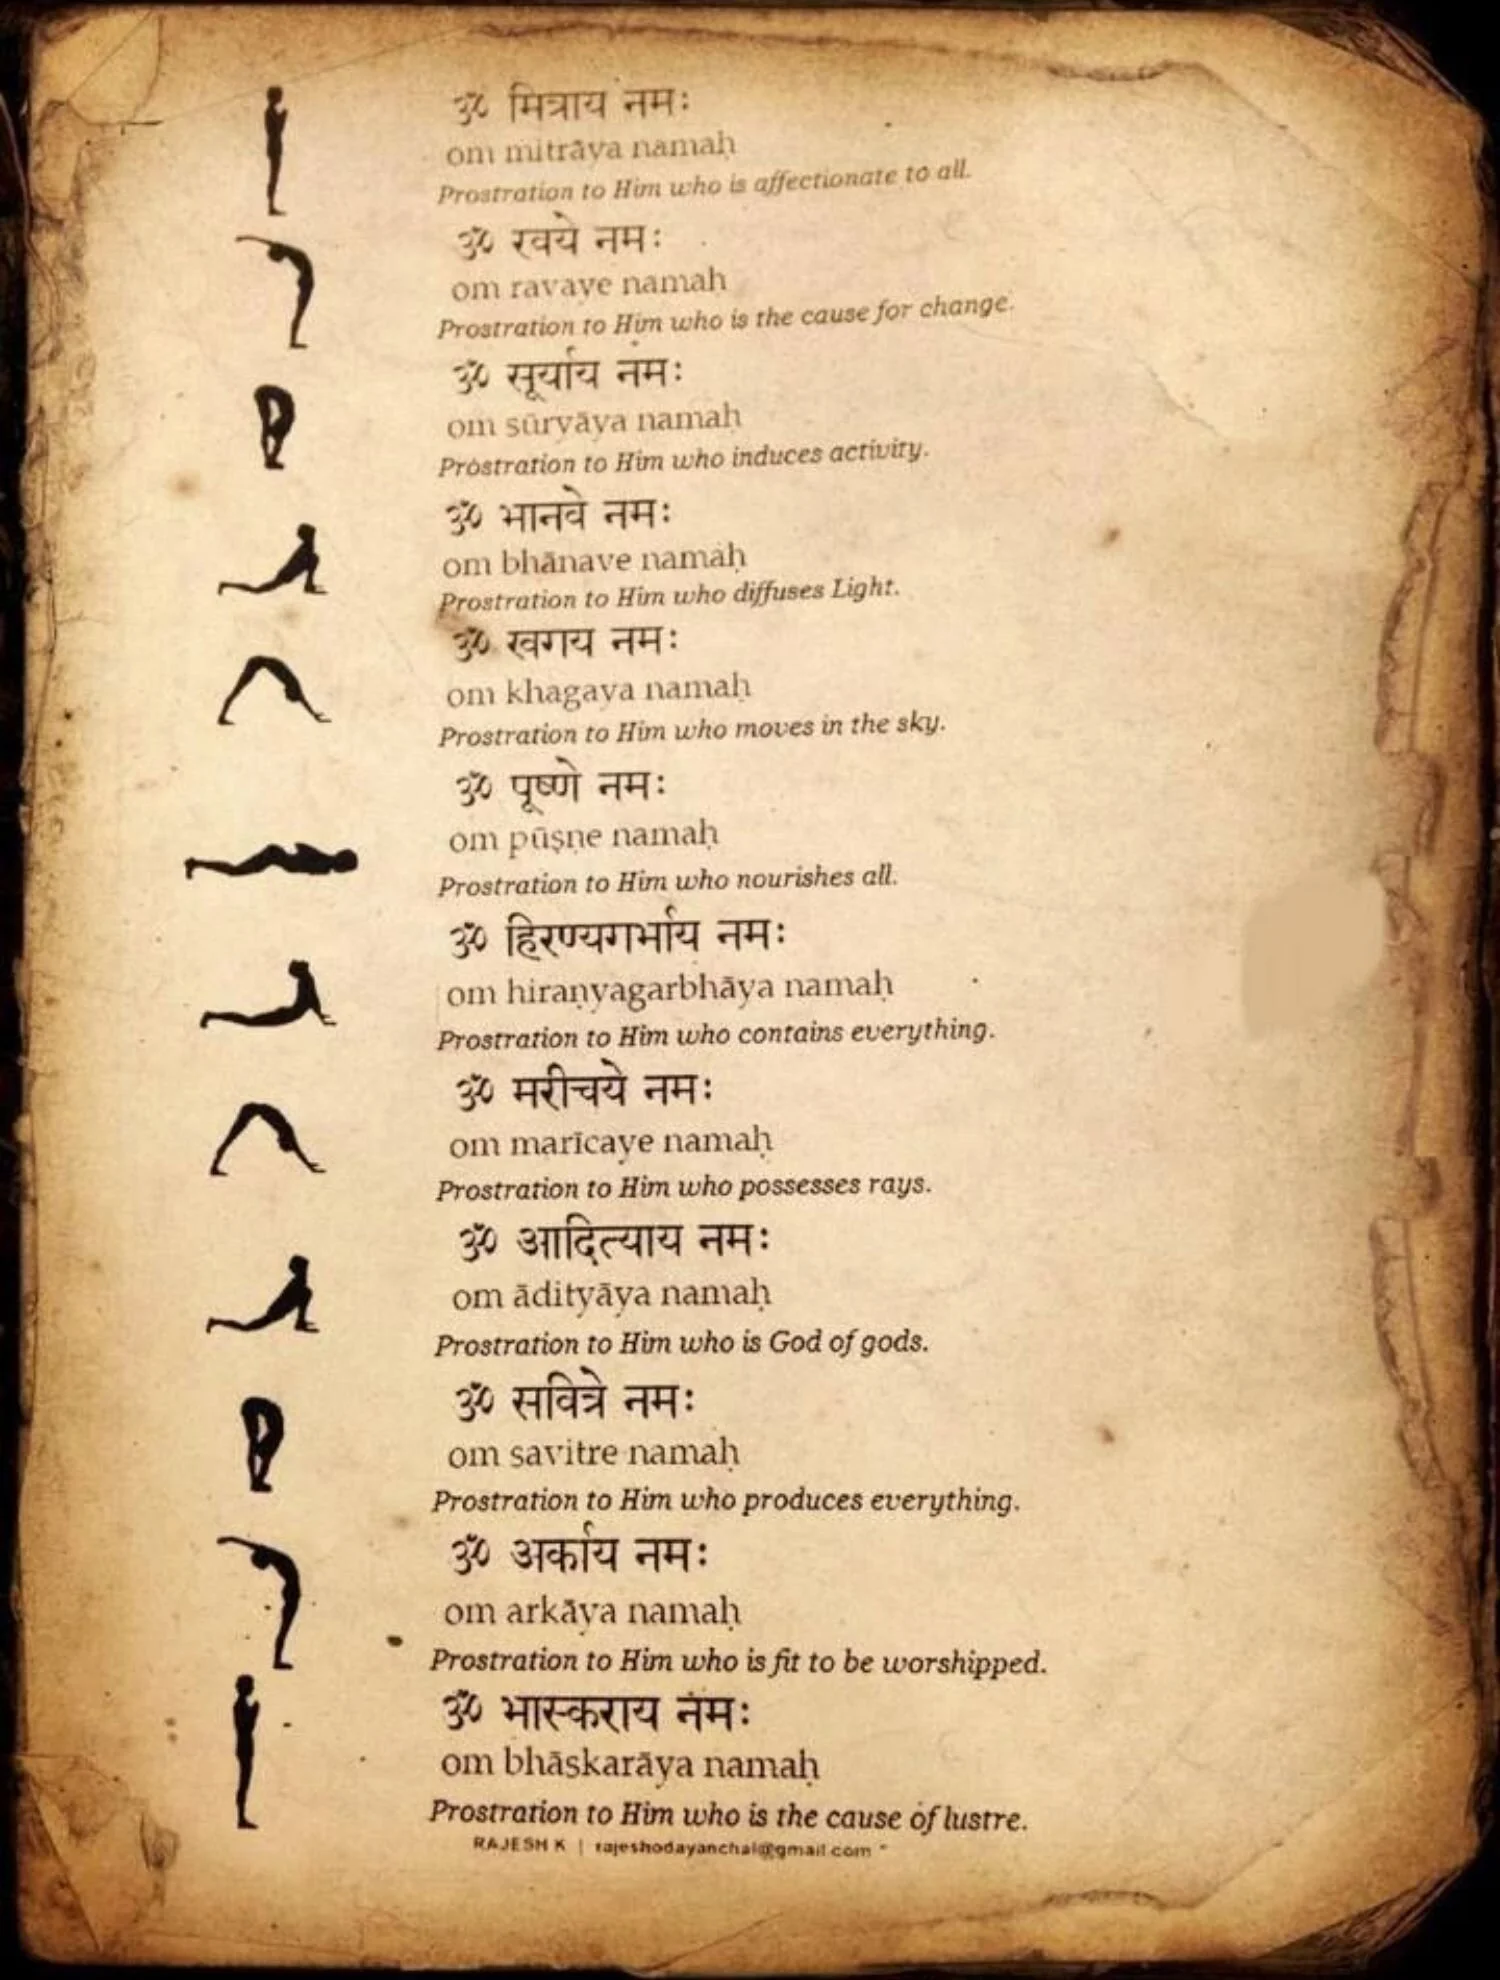 ॐ मित्राय नमः
om mitrāya namaḥ
Prostration to Him who is affectionate to all.
ॐ रवये नमः
om ravaye namaḥ
Prostration to Him who is the cause for change.
ॐ सूर्याय नमः
om sūryāya namaḥ
Prostration to Him who induces activity.
ॐ भानवे नमः
om bhānave namaḥ
Prostration to Him who diffuses Light.
ॐ खगय नमः
om khagaya namaḥ
Prostration to Him who moves in the sky.
ॐ पूष्णे नमः
om pūṣṇe namaḥ
Prostration to Him who nourishes all.
ॐ हिरण्यगर्भाय नमः
om hiraṇyagarbhāya namaḥ
Prostration to Him who contains everything.
ॐ मरीचये नमः
om marīcaye namaḥ
Prostration to Him who possesses rays.
ॐ आदित्याय नमः
om ādityāya namaḥ
Prostration to Him who is God of gods.
ॐ सवित्रे नमः
om savitre namaḥ
Prostration to Him who produces everything.
ॐ अर्काय नमः
om arkāya namaḥ
Prostration to Him who is fit to be worshipped.
ॐ भास्कराय नमः
om bhāskarāya namaḥ
Prostration to Him who is the cause of lustre.
RAJESH K | rajeshodayanchal@gmail.com